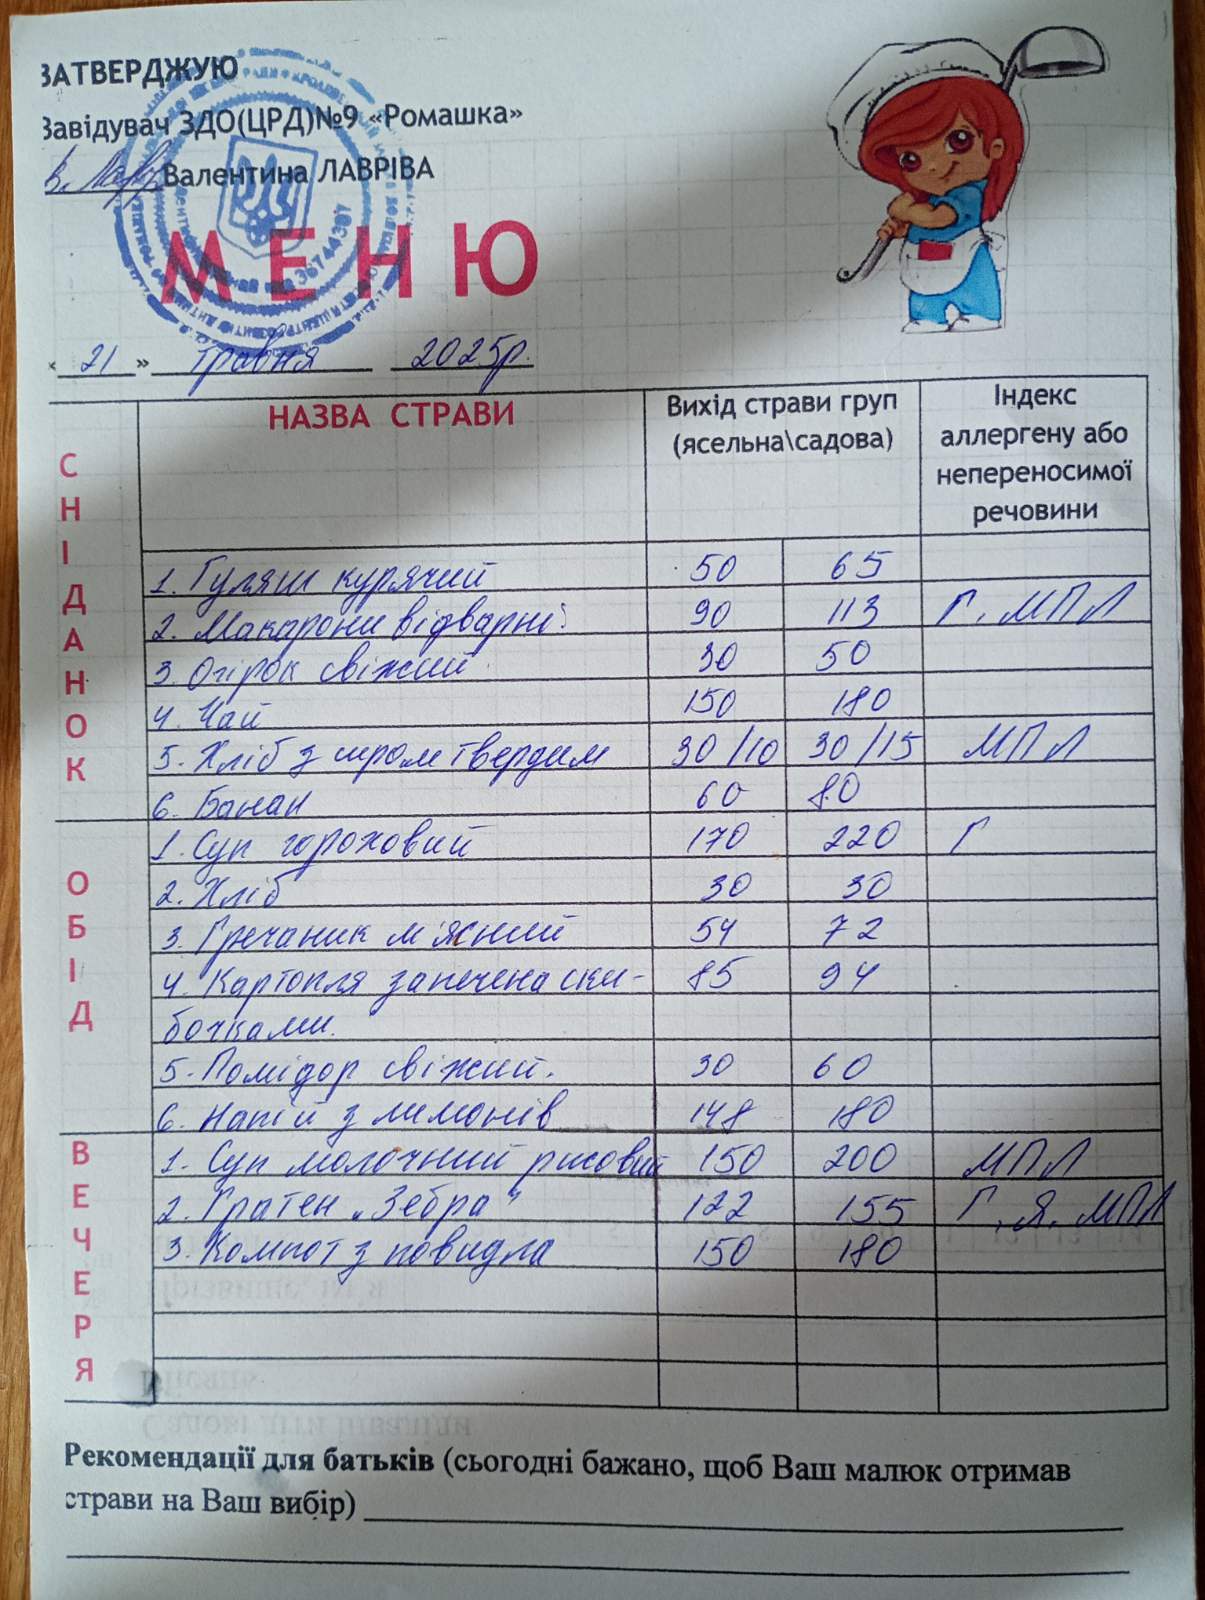 ЗАТВЕРДЖУЮ
Завідувач ЗДО(ЦРД)№9 «Ромашка»
Валентина ЛАВРІВА
МЕНЮ
« 21 » травня 2025р.
НАЗВА СТРАВИ
Вихід страви груп
(ясельна\садова)
Індекс
аллергену або
непереносимої
речовини
СНІДАНОК
1. Гуляш курячий 50 65
2. Макарони відварні. 90 113 Г, МПЛ
3. Огірок свіжий 30 50
4. Чай 150 180
5. Хліб з сиром твердим 30/10 30/15 МПЛ
6. Банан 60 80
ОБІД
1. Суп гороховий 170 220 Г
2. Хліб 30 30
3. Гречаник м'ясний 54 72
4. Картопля запечена ски- 85 94
бочками.
5. Помідор свіжий. 30 60
6. Напій з лимонів 148 180
ВЕЧЕРЯ
1. Суп молочний рисовий 150 200 МПЛ
2. Гратен „Зебра" 122 155 Г, Я, МПЛ
3. Компот з повидла 150 180
Рекомендації для батьків (сьогодні бажано, щоб Ваш малюк отримав
страви на Ваш вибір)